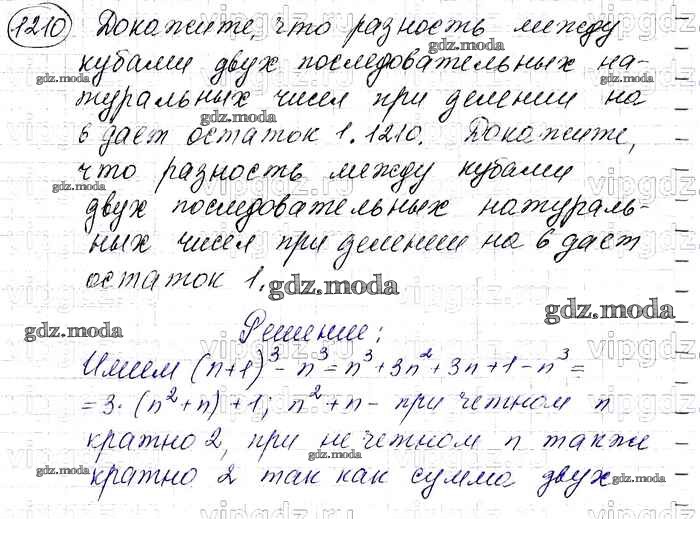 1210 Докажите, что разность между
кубами двух последовательных на-
туральных чисел при делении на
6 дает остаток 1. 1210. Докажите,
что разность между кубами
двух последовательных натураль-
ных чисел при делении на 6 дает
остаток 1.
Решение:
Имеем (n+1)³ - n³ = n³ + 3n² + 3n + 1 - n³ =
= 3 · (n² + n) + 1; n² + n - при четном n
кратно 2, при нечетном n также
кратно 2 так как сумма двух
gdz.moda
vipgdz.ru